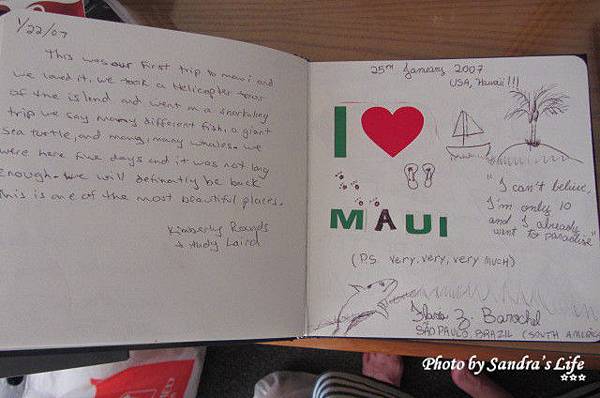 1/22/07
This was our first trip to maui and
we loved it. we took a Helicopter tour
of the island and went on a snorkeling
trip we say many different fish, a giant
sea turtle, and many, many whales. we
were here five days and it was not long
enough. we will definatly be back
This is one of the most beautiful places.
Kimberly Rounds
+ Andy Laird
25th January 2007
USA, Hawaii!!!
I
MAUI
"I can't believe,
I'm only 10
and I already
went to paradise"
(P.S. very, very, very MUCH)
Z.
SÃO PAULO, BRAZIL (SOUTH AMERICA)
Photo by Sandra's Life